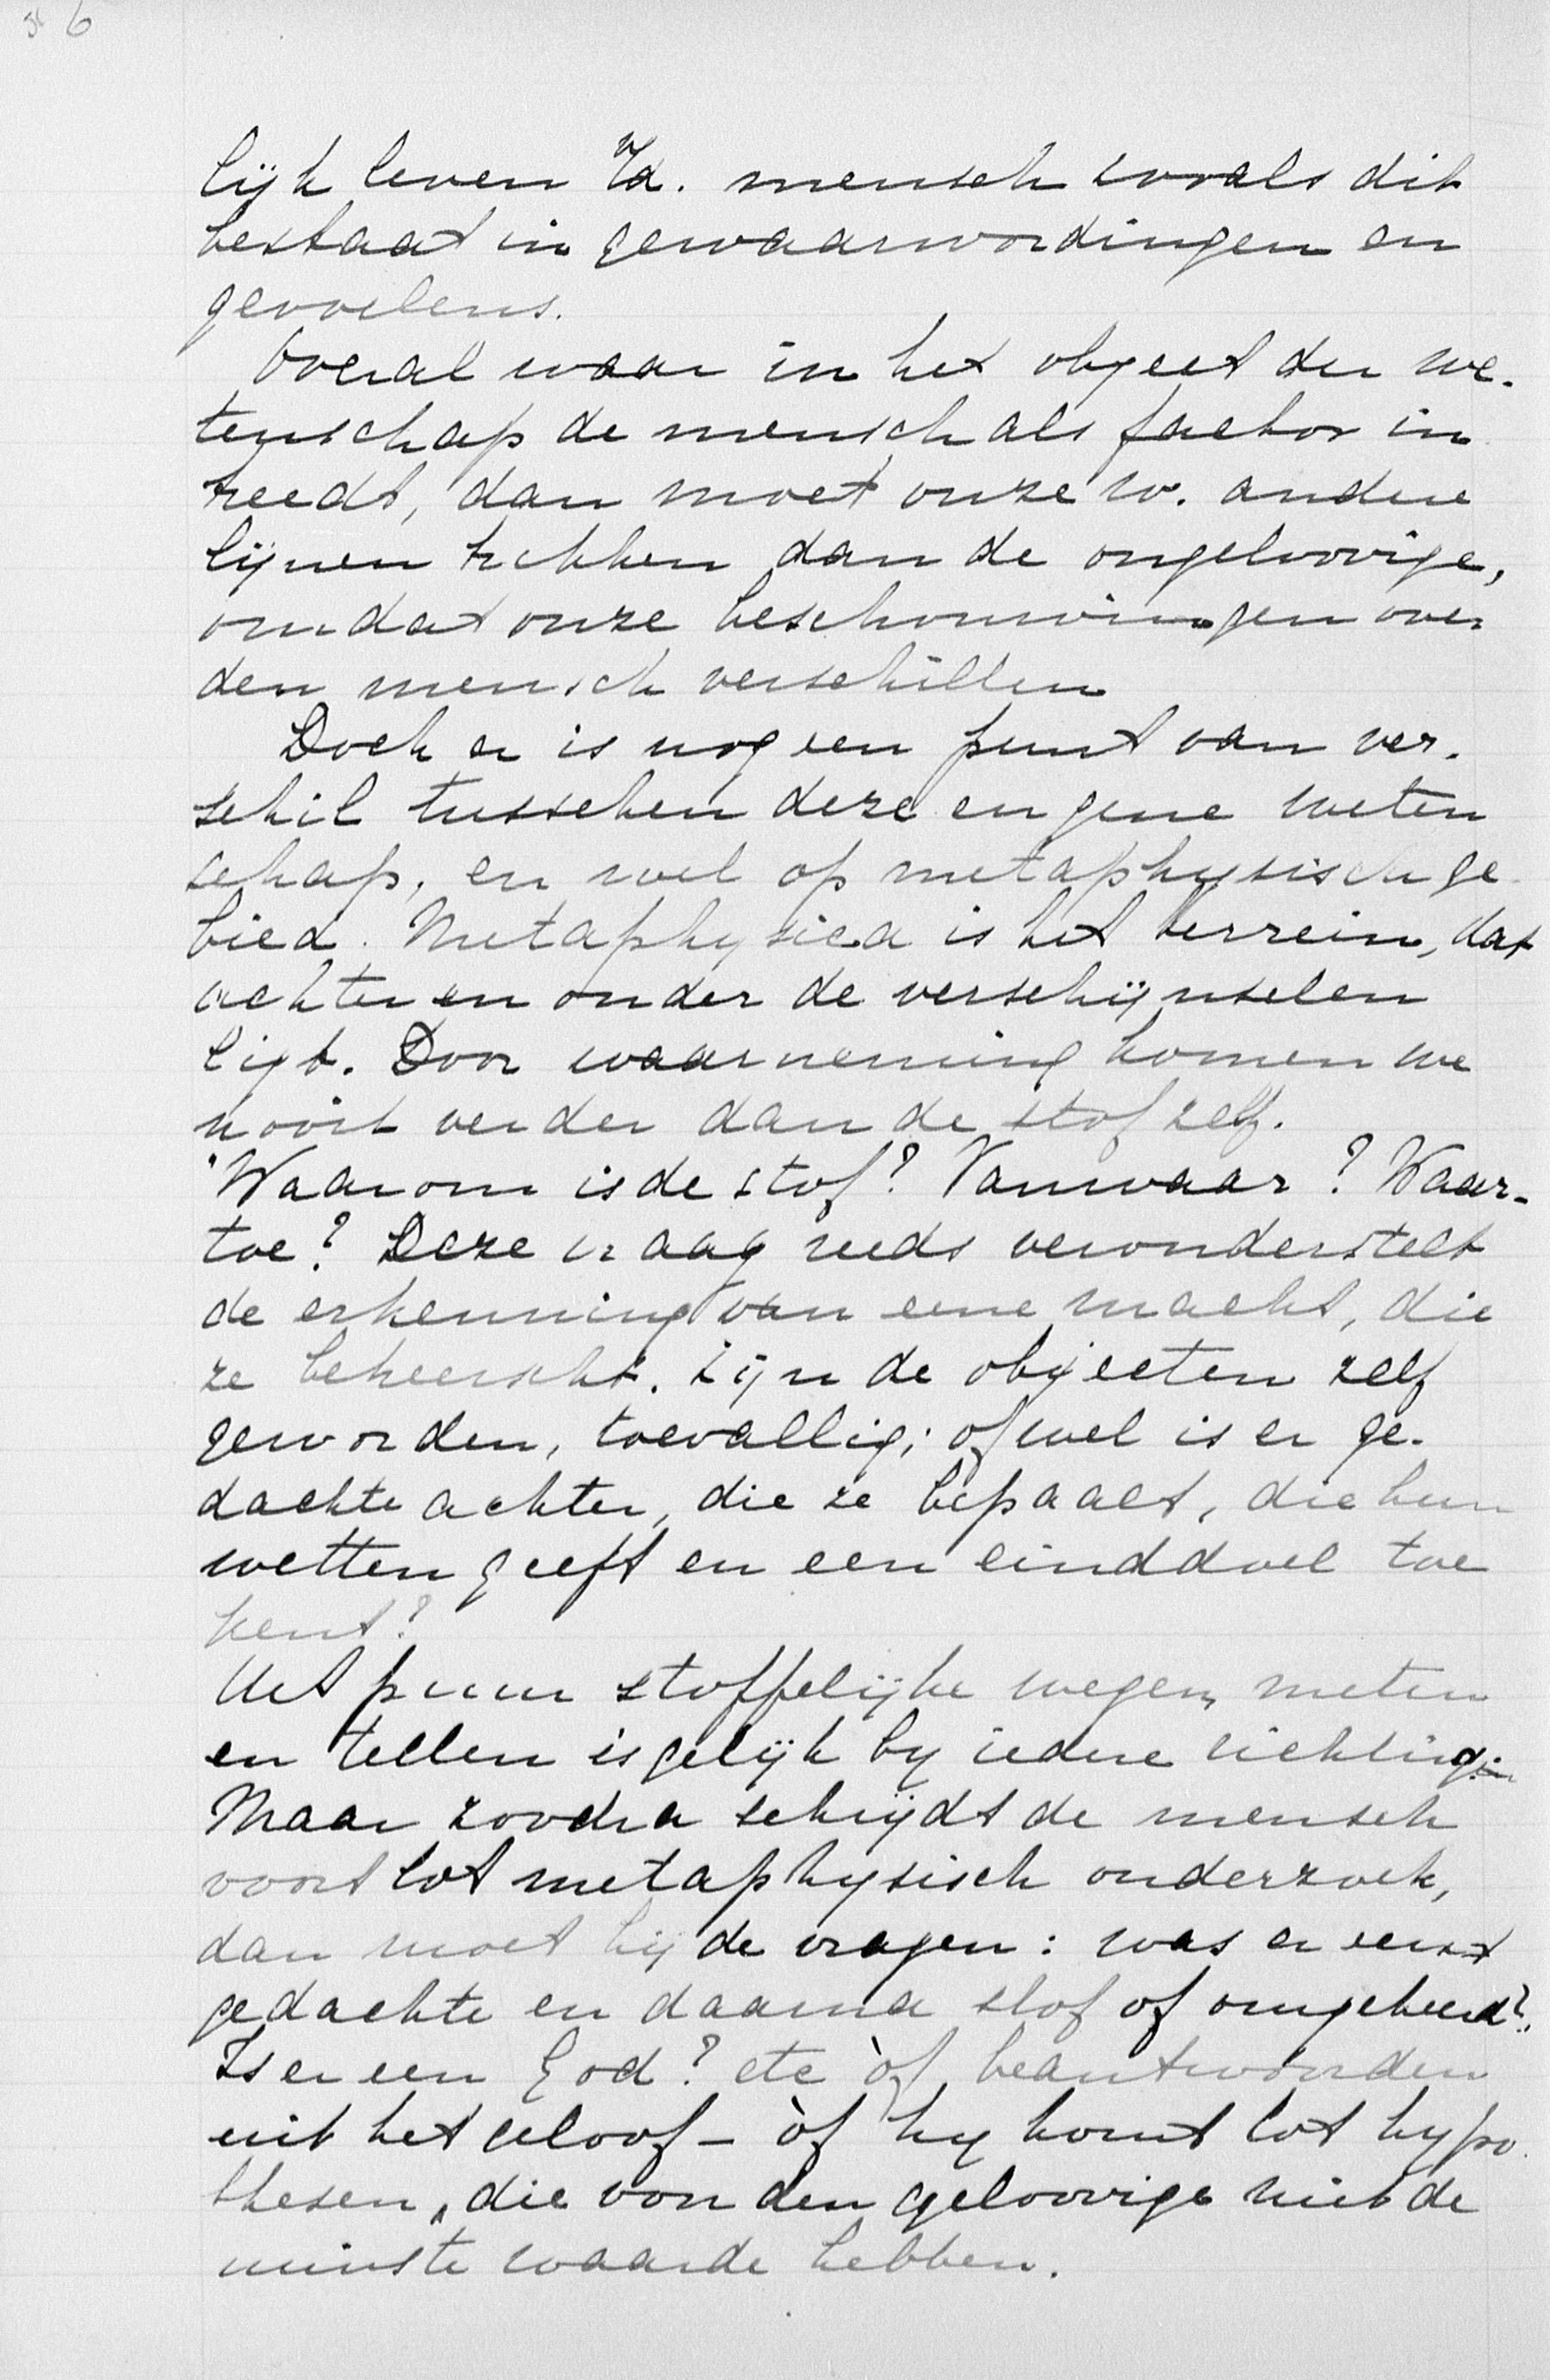 6
lijk leven v/d. mensch zooals dit
bestaat in gewaarwordingen en
gevoelens.
Overal waar in het object der we-
tenschap de mensch als factor in
treedt, dan moet onze w. andere
lijnen trekken dan de ongeloovige,
omdat onze beschouwingen over
den mensch verschillen
Doch er is nog een punt van ver-
schil tusschen deze en gene weten
schap, en wel op metaphysisch ge
bied. Metaphysica is het terrein, dat
achter en onder de verschijnselen
ligt. Door waarneming komen we
nooit verder dan de stof zelf.
"Waarom is de stof? Vanwaar? Waar-
toe? Deze vraag reeds veronderstelt
de erkenning van eene macht, die
ze beheerscht. Zijn de objecten zelf
geworden, toevallig; ofwel is er ge-
dachte achter, die ze bepaalt, die hun
wetten geeft en een einddoel toe
kent?
Het puur stoffelijke wegen, meten
en tellen is gelijk by iedere richting.
Maar zoodra schrijdt de mensch
voort tot metaphysisch onderzoek,
dan moet hij de vragen: was er eerst
gedachte en daarna stof of omgekeerd?
Is er een God? etc òf beantwoorden
uit het geloof - òf hy komt tot hypo
thesen, die voor den geloovige niet de
minste waarde hebben.